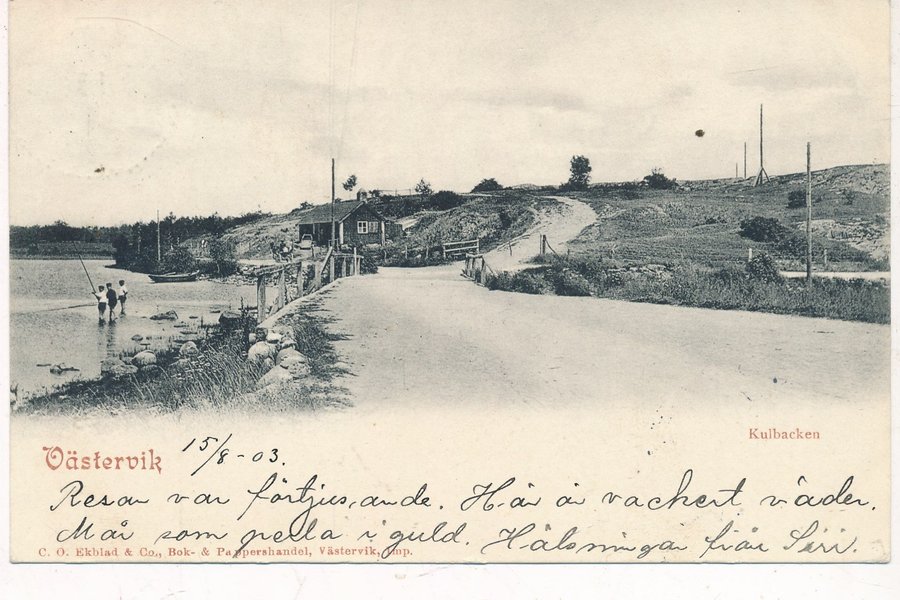 Kulbacken
Västervik 15/8-03.
Resan var förtjusande. Här är vackert väder.
Mår som perla i guld. Hälsningar från Siri.
C. O. Ekblad & Co., Bok- & Pappershandel, Västervik, Imp.